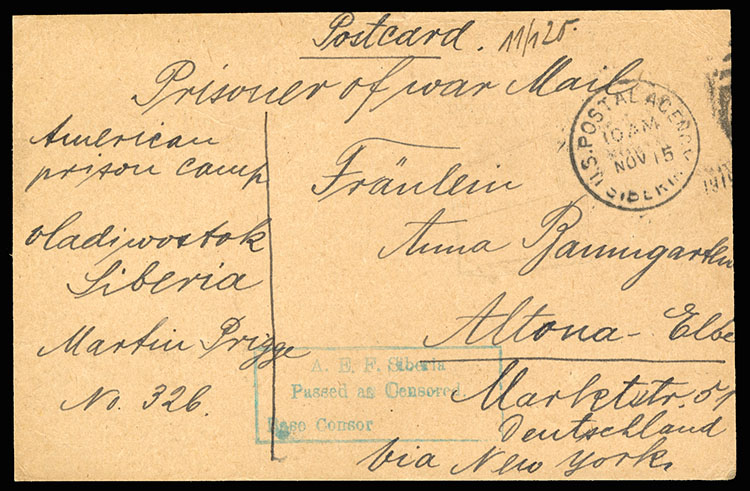 Postcard. 11/1 20.
Prisoner of war Mail
American
prison camp
Vladiwostok
Siberia
Martin Prigge
No. 326.
U.S. POSTAL AGENCY
10 AM
NOV 15
SIBERIA
191
Fräulein
Anna Baumgarten
Altona-Elbe
Marktstr. 51
Deutschland
via New York.
A. E. F. Siberia
Passed as Censored
Base Censor